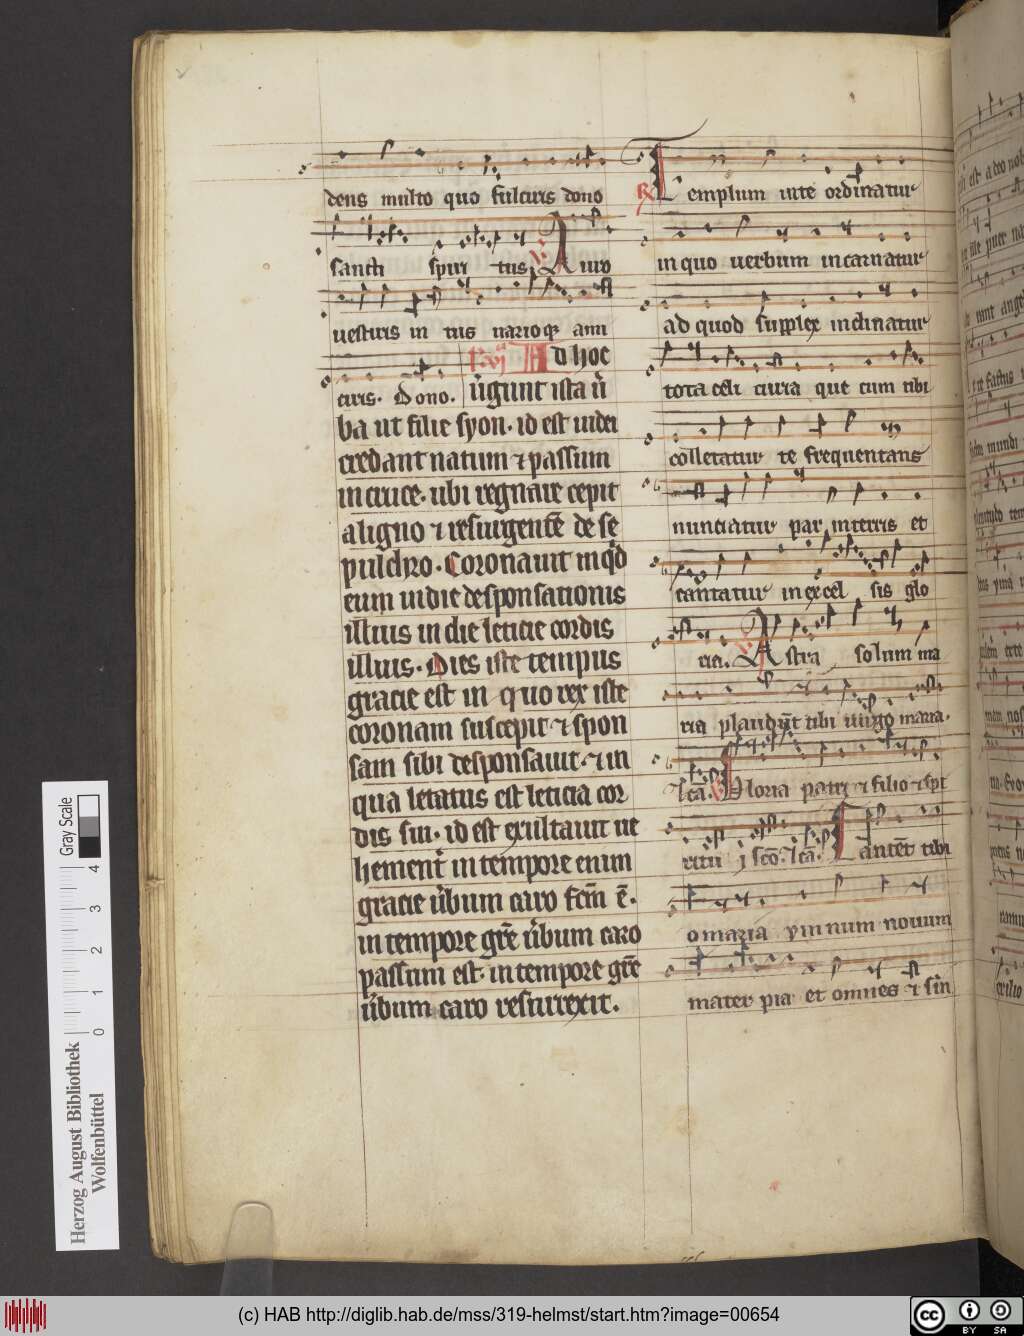 dens multo quo fulcuis dono
sancti spiri tus. V. A uro
uestiris in tus uarioqꝫ ami
ctus. Dono. Lc̄ vj A d hoc
ꝟgunt ista ꝟ
ba ut filie syon. id est uidei
credant natum ⁊ passum
in cruce. ubi regnare cepit
a ligno ⁊ resurgentē de se
pulchro. Coronauit inqͥd
eum in die desponsationis
illius in die leticie cordis
illius. Dies iste tempus
gracie est in quo rex iste
coronam suscepit ⁊ spon
sam sibi desponsauit. ⁊ in
qua letatus est leticia cor
dis sui. id est exultauit ue
hement̄ in tempore enim
gracie ꝟbum caro fcm̄ ē.
in tempore grē ꝟbum caro
passum est. in tempore grē
ꝟbum caro resurrexit.
R T emplum iure ordinatur
in quo uerbum incarnatur
ad quod supplex inclinatur
tota celi curia que cum tibi
colletatur te frequentans
nunciatur pax interris et
cantatur in excel sis glo
ria. V. A stra solum ma
ria plaudūt tibi uirgo maria.
Sca. V. Gloria patri ⁊ filio ⁊ spi
ritui sco. Sca. C antēt tibi
o maria ymnum nouum
mater pia et omnes ⁊ sin
Gray Scale
4 3 2 1 0
Herzog August Bibliothek
Wolfenbüttel
(c) HAB http://diglib.hab.de/mss/319-helmst/start.htm?image=00654
cc BY SA